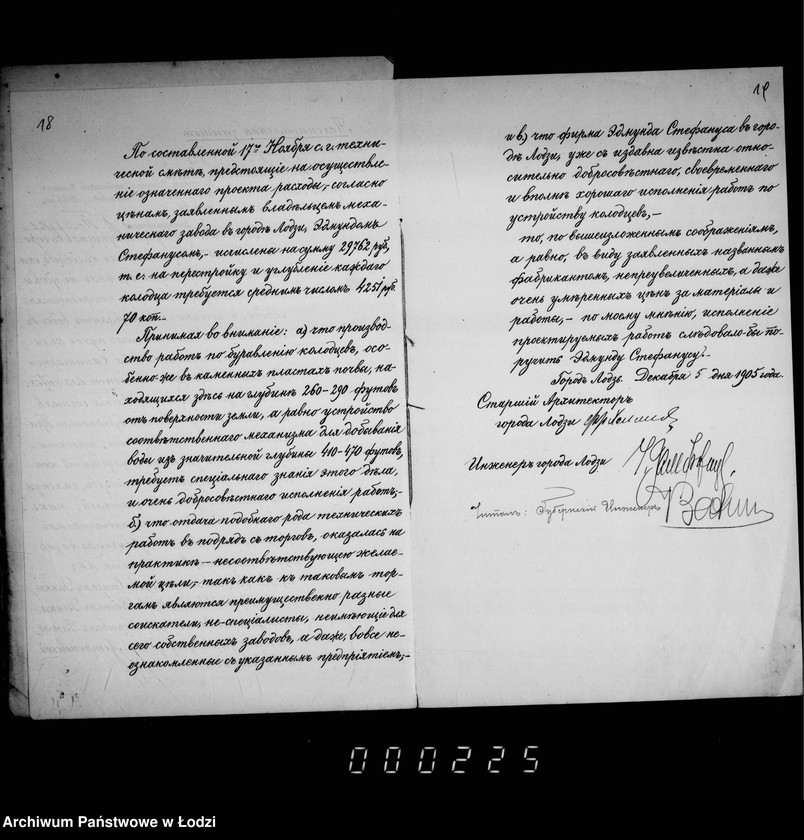 18
По составленной 17го Ноября с. г. техни-
ческой смѣтѣ, предстоящіе на осуществле-
ніе означеннаго проекта расходы,- согласно
цѣнамъ, заявленнымъ владѣльцемъ меха-
ническаго завода въ городѣ Лодзи, Эдмундомъ
Стефанусомъ,- исчислены на сумму 29762 руб,
т. е. на перестройку и углубленіе каждаго
колодца требуется среднимъ числомъ 4251 руб.
70 коп.-
Принимая во вниманіе: а) что производ-
ство работъ по буравленію колодцевъ, осо-
бенно же въ каменныхъ пластахъ почвы, на-
ходящихся здѣсь на глубинѣ 260-290 футовъ
отъ поверхности земли, а равно устройство
соотвѣтственнаго механизма для добыванія
воды изъ значительной глубины 410-470 футовъ,
требуетъ спеціальнаго знанія этого дѣла,
и очень добросовѣстнаго исполненія работъ;-
б) что отдача подобнаго рода техническихъ
работъ въ подрядъ съ торговъ, оказалась на
практикѣ - несоотвѣтствующею желае-
мой цѣли,- такъ какъ къ таковымъ тор-
гамъ являются преимущественно разные
соискатели, не-спеціалисты, неимѣющіе для
сего собственныхъ заводовъ, а даже, вовсе не-
ознакомленные съ указаннымъ предпріятіемъ,-
19
и в) что фирма Эдмунда Стефануса въ горо-
дѣ Лодзи, уже съ издавна извѣстна отно-
сительно добросовѣстнаго, своевременнаго
и вполнѣ хорошаго исполненія работъ по
устройству колодцевъ,-
то, по вышеизложеннымъ соображеніямъ,
а равно, въ виду заявленныхъ названнымъ
фабрикантомъ, непреувеличенныхъ, а даже
очень умѣренныхъ цѣнъ за матеріалы и
работы,- по моему мнѣнію, исполненіе
проектируемыхъ работъ слѣдовало-бы по-
ручить Эдмунду Стефанусу.-
Городъ Лодзь. Декабря 5 дня 1905 года.
Старшій Архитекторъ
города Лодзи
Инженеръ города Лодзи
Читалъ: Губернскій Инженеръ
000225
Archiwum Państwowe w Łodzi